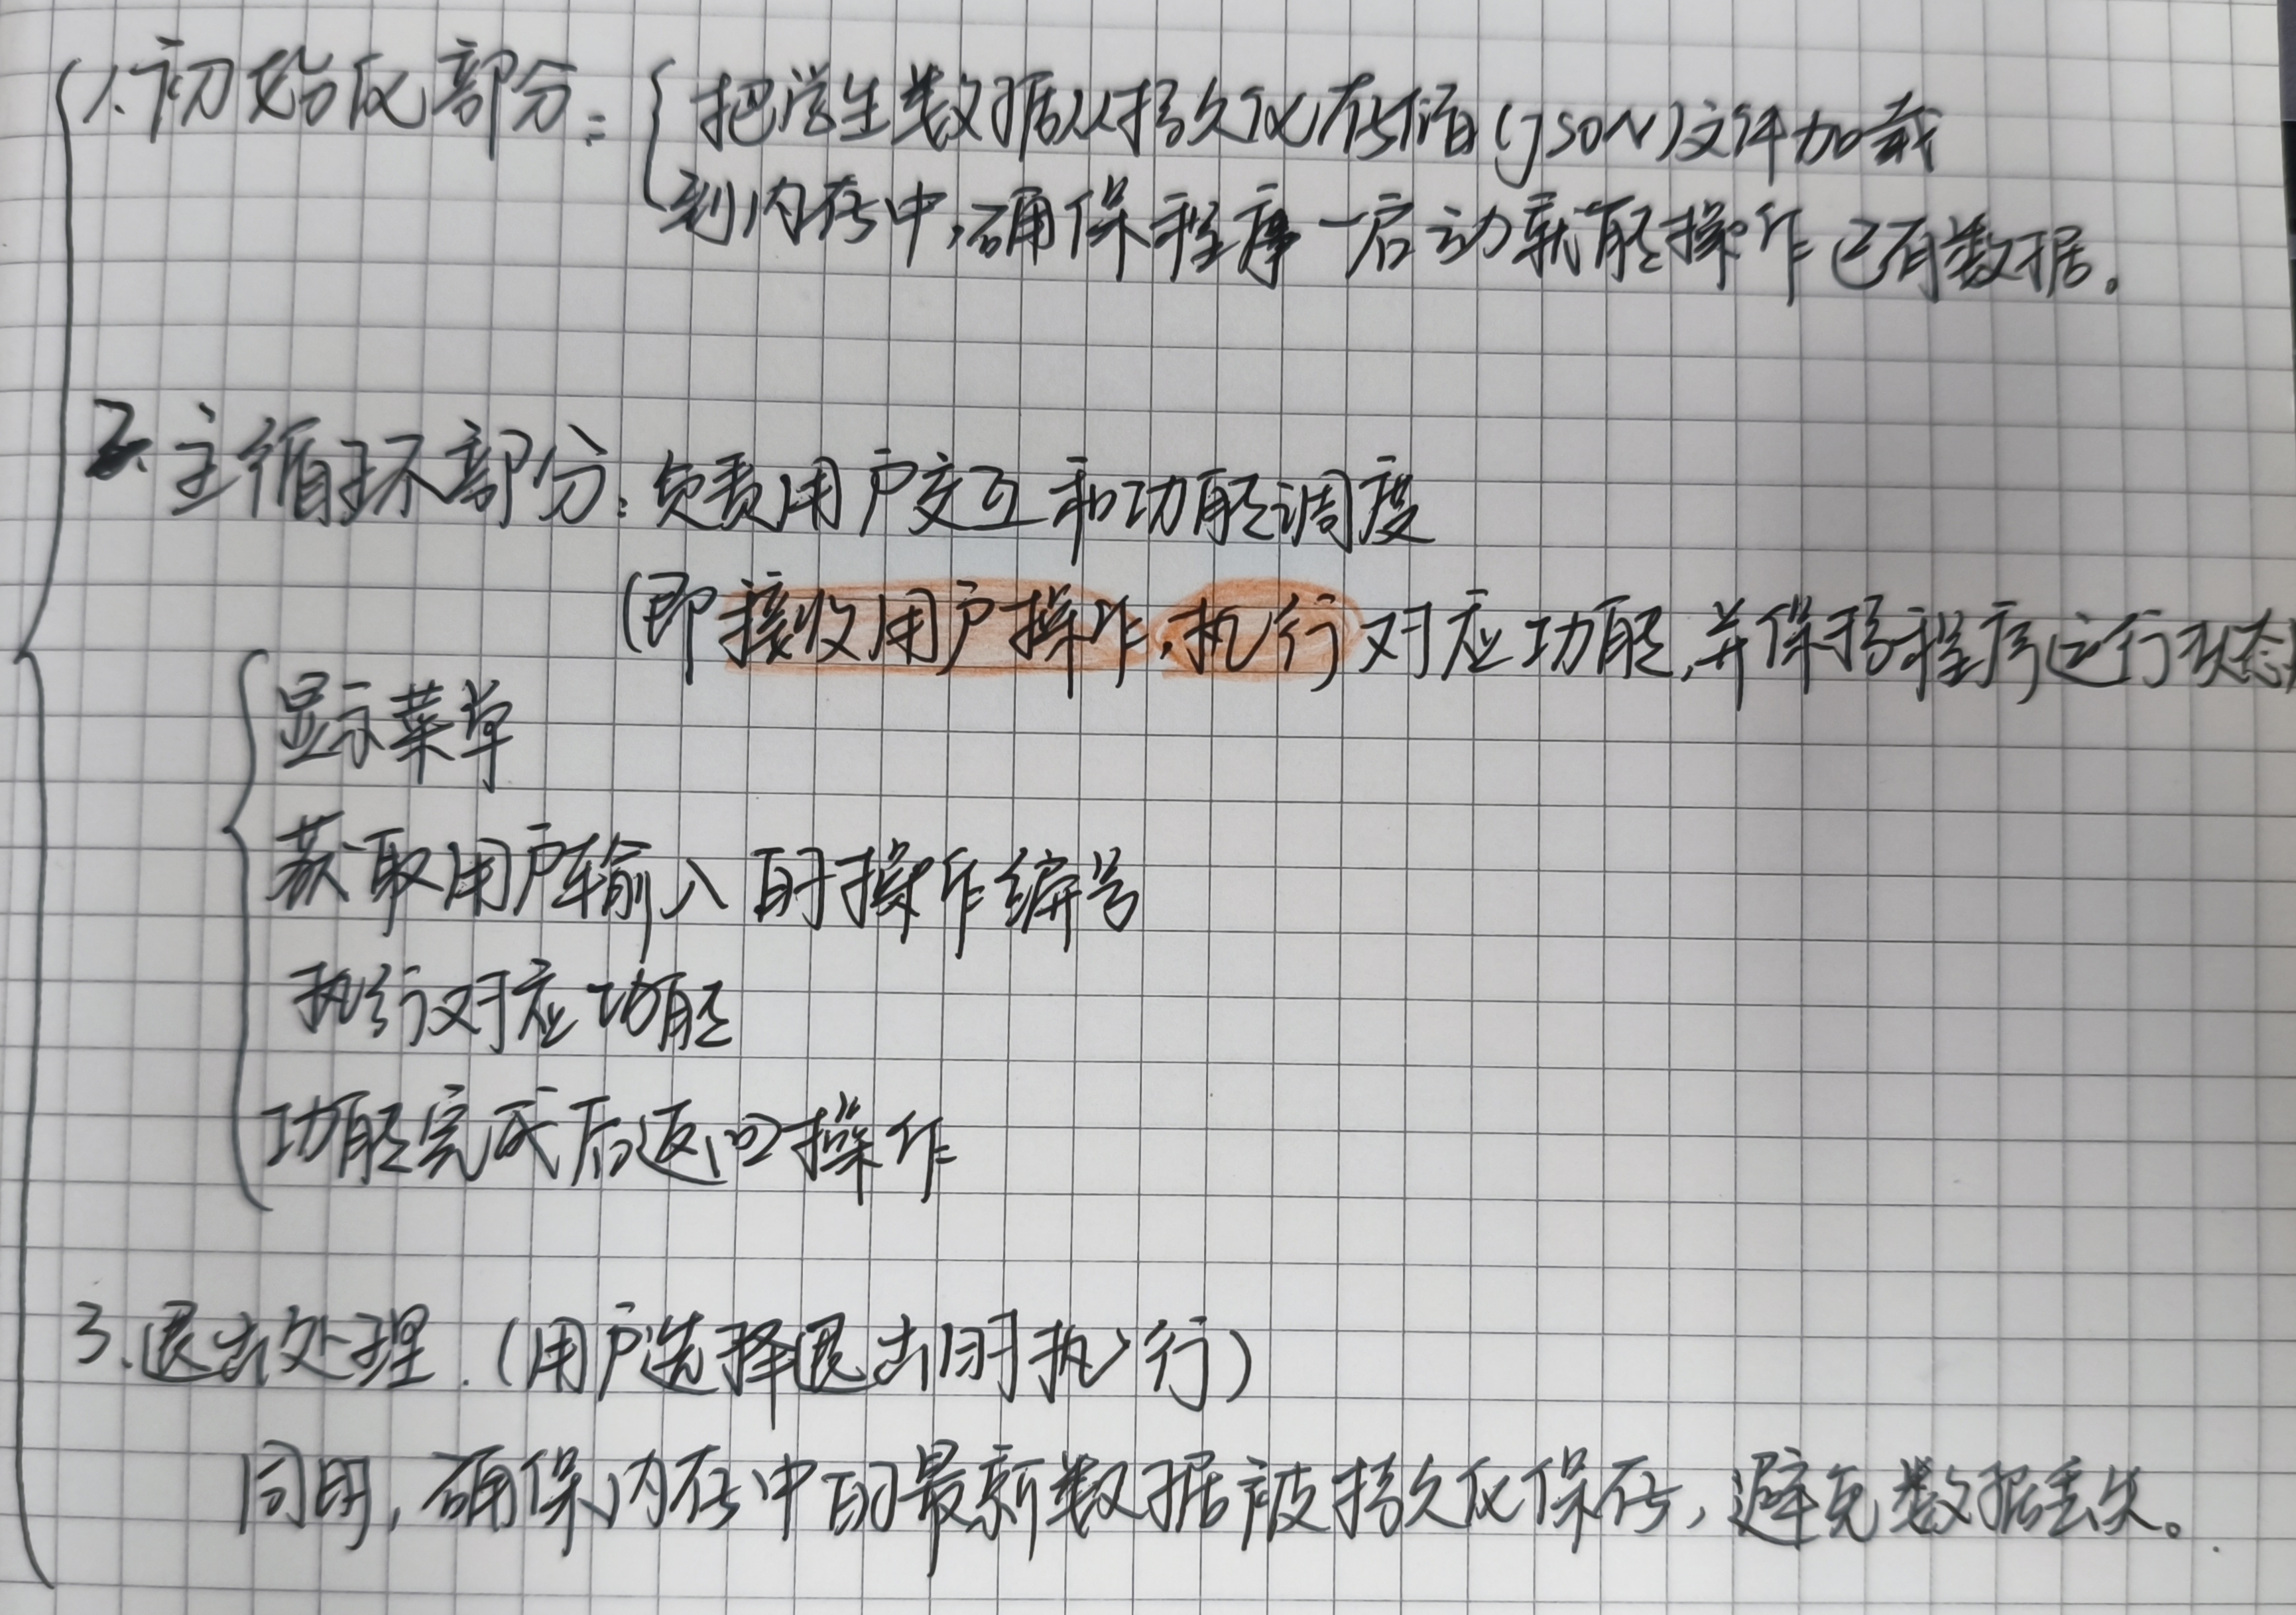 1.初始化部分:把学生数据从持久化存储(JSON)文件加载
到内存中,确保程序一启动就能操作已有数据。
2.主循环部分:负责用户交互和功能调度
(即接收用户操作,执行对应功能,并保持程序运行状态)
显示菜单
获取用户输入的操作编号
执行对应功能
功能完成后返回操作
3.退出处理.(用户选择退出时执行)
,确保内存中的最新数据被持久化保存,避免数据丢失。